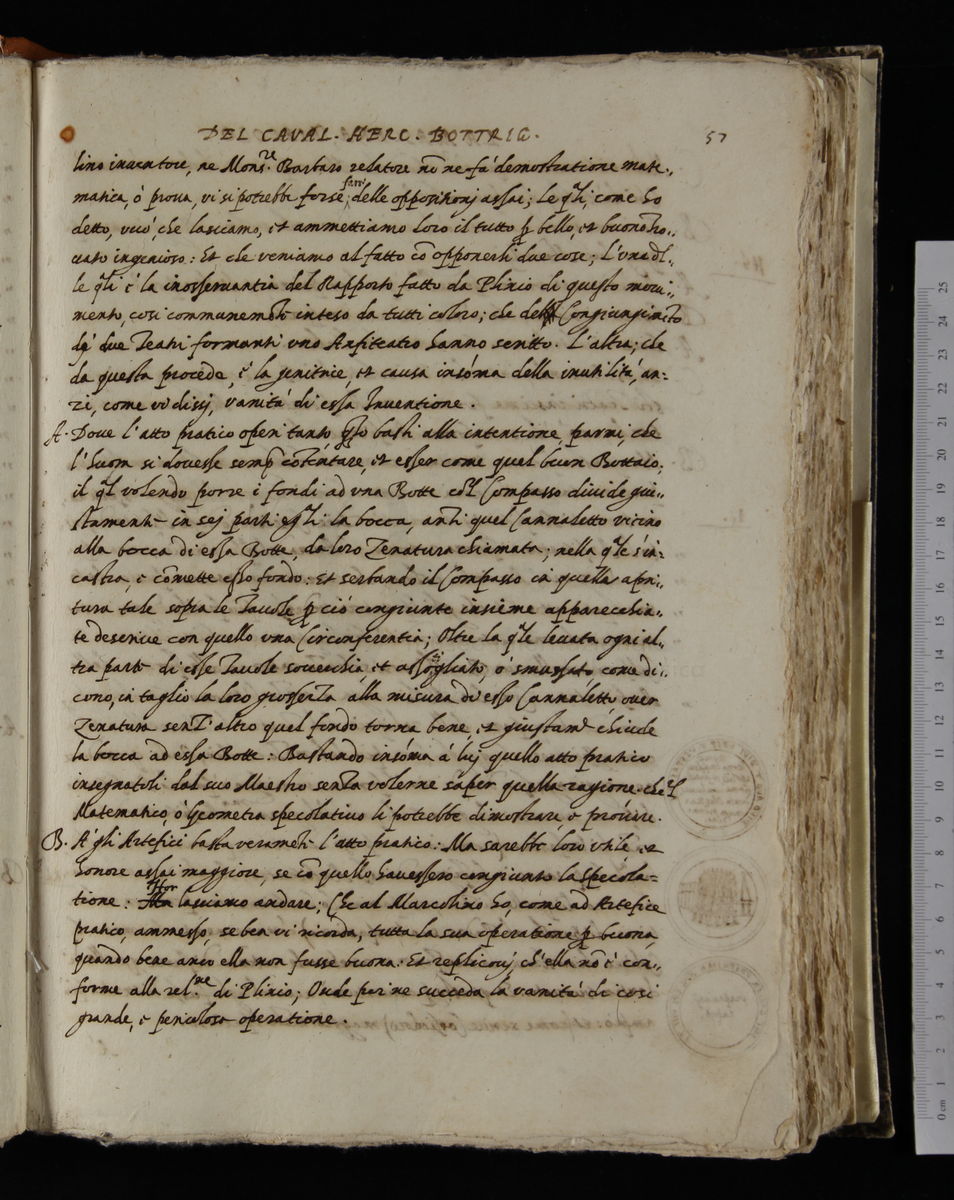 DEL CAVAL. HERC. BOTTRIG. 57
lino inventore, ne Mons.re Barbaro relatore nō ne fà demostratione mate..
matica, ò prova, vi si potrebbe forse farri delle oppositionj assai; Le q̃li, come ho
detto, vuò, che lasciamo, et ammettiamo loro il tutto ꝑ bello, et buono tro..
vato ingenioso: Et che veniamo al fatto cō opponerli due cose; L'una dl..
le q̃li è la inosservantia del Rapporto fatto da Plinio di questo movi..
mento, così communemente inteso da tutti coloro; che del Congiungimēto
dé due Teatri formanti uno Anfiteatro hanno scritto. L'altra; che
da questa procede, è la genitrice, et causa insōma della inutilità, an:
zi, come vi dissi, vanità di essa Inventione.
A. Dove l'atto pratico operi tanto, q̃sto basti alla intentione, parmi, che
l'huom si dovesse semp̄ cōtentare, et esser come quel buon Bottaio,
il q̃l volendo porre i fondi ad una Botte col Compasso divide giu..
stamente in sej parti eq̃li la bocca, anti quel Cannaletto vicino
alla bocca di essa Botte, da loro Zenatura chiamata; nella q̃le s'in:
castra, e cōmette esso fondo: Et serbando il Compasso in quella apri..
tura tale sopra le Tavole ꝑ ciò congiunte insieme apparecchia..
te descrive con quello una Circonferentia; Oltre la q̃le levata ogni al..
tra parte di esse Tavole soverchia, et assotigliato, ò smussato come di..
cono, in taglio la loro grossezza alla misura di esso Cannaletto over
Zenatura senz'altro quel fondo torna bene, et giustam.te chiude
la bocca ad essa Botte: Bastando insōma à luj quello atto pratico
insegnatoli dal suo Maestro senza volerne saper quella ragione che'l
Matematico, ò Geometra specolativo li potrebbe dimostrare, o provare.
B. A gli Artefici basta veramēte l'atto pratico: Ma sarebbe loro utile et
honore assai maggiore, se cō quello havessero congiunto la specola=
tione: Hor lasciamo andare; Che al Marcolino ho, come ad Artefice
pratico, ammesso, se ben vi ricorda, tutta la sua operatione ꝑ buona,
quando bene anco ella non fusse buona. Et replicovj, ch'ella nō è con..
forme alla rel.ne di Plinio; Onde poi ne succeda la vanità di così
grande, e pericolosa operatione.